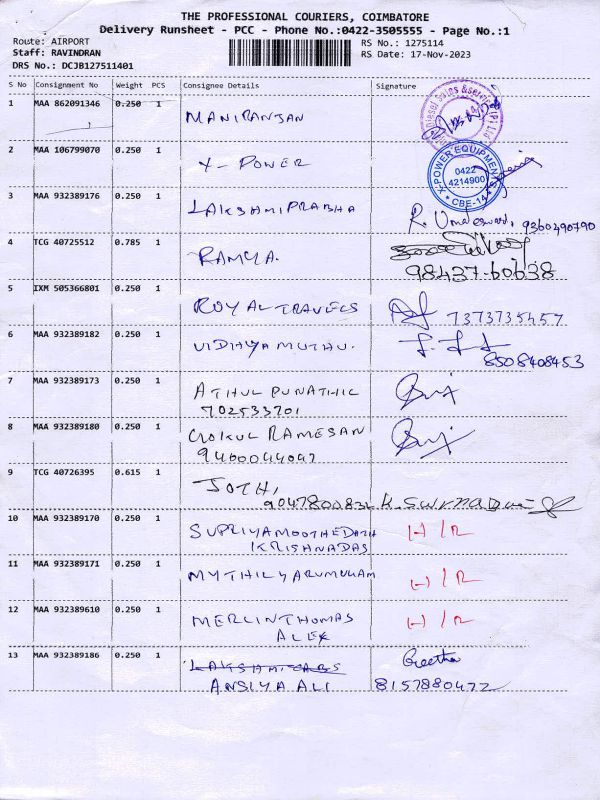 THE PROFESSIONAL COURIERS, COIMBATORE
Delivery Runsheet - PCC - Phone No.:0422-3505555 - Page No.:1
Route: AIRPORT
Staff: RAVINDRAN
DRS No.: DCJB127511401
RS No.: 1275114
RS Date: 17-Nov-2023
S No Consignment No Weight PCS Consignee Details Signature
1 MAA 862091346 0.250 1 MANIRANJAN
Diesel Sales & Service (P) Ltd
2 MAA 106799070 0.250 1 X-POWER
X-POWER EQUIPMENTS
0422
4214900
CBE-14
3 MAA 932389176 0.250 1 LAKSHMIPRABHA
R. Umadeswari, 9360490790
4 TCG 40725512 0.785 1 RAMYA.
98437-60638
5 IXM 505366801 0.250 1 ROYAL TRAVELS 7373735457
6 MAA 932389182 0.250 1 VIDHYAMUTHU.
8508408453
7 MAA 932389173 0.250 1 ATHUL PUNATHIL
702533701
8 MAA 932389180 0.250 1 GOKUL RAMESAN
9400044047
9 TCG 40726395 0.615 1 JOTHI
9047800832
10 MAA 932389170 0.250 1 SUPRIYAMOOTHEDATH H/R
KRISHNADAS
11 MAA 932389171 0.250 1 MYTHILYARUMUGAM H/R
12 MAA 932389610 0.250 1 MERLINTHOMAS H/R
ALEX
13 MAA 932389186 0.250 1 LAKSHMI CABS Geetha
ANSIYA ALI 8157880472